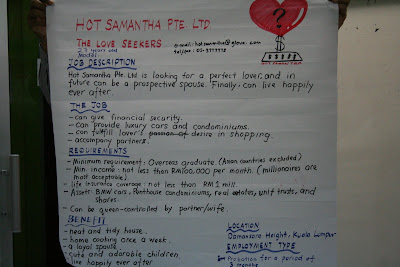 HOT SAMANTHA PTE. LTD
THE LOVE SEEKERS
?
JOB DESCRIPTION
Hot Samantha Pte. Ltd is looking for a perfect lover, and in
future can be a prospective spouse. Finally, can live happily
ever after.
THE JOB
- can give financial security.
- can provide luxury cars and condominiums.
- can fulfill lover's desire in shopping.
- accompany partners.
REQUIREMENTS
- Minimum requirement: Overseas graduate (Asian countries excluded)
- Min income: not less than RM100,000 per month. (millionaires are
most acceptable).
- life insurance coverage: not less than RM 1 mill.
- Asset: BMW cars, Penthouse condominiums, real estates, unit trusts, and
shares.
- Can be queen-controlled by partner/wife.
BENEFIT
- neat and tidy house.
- home cooking once a week.
- a loyal spouse.
- cute and adorable children
- live happily ever after
LOCATION
Damansara Height, Kuala Lumpur
EMPLOYMENT TYPE
Probation for a period of
3 months